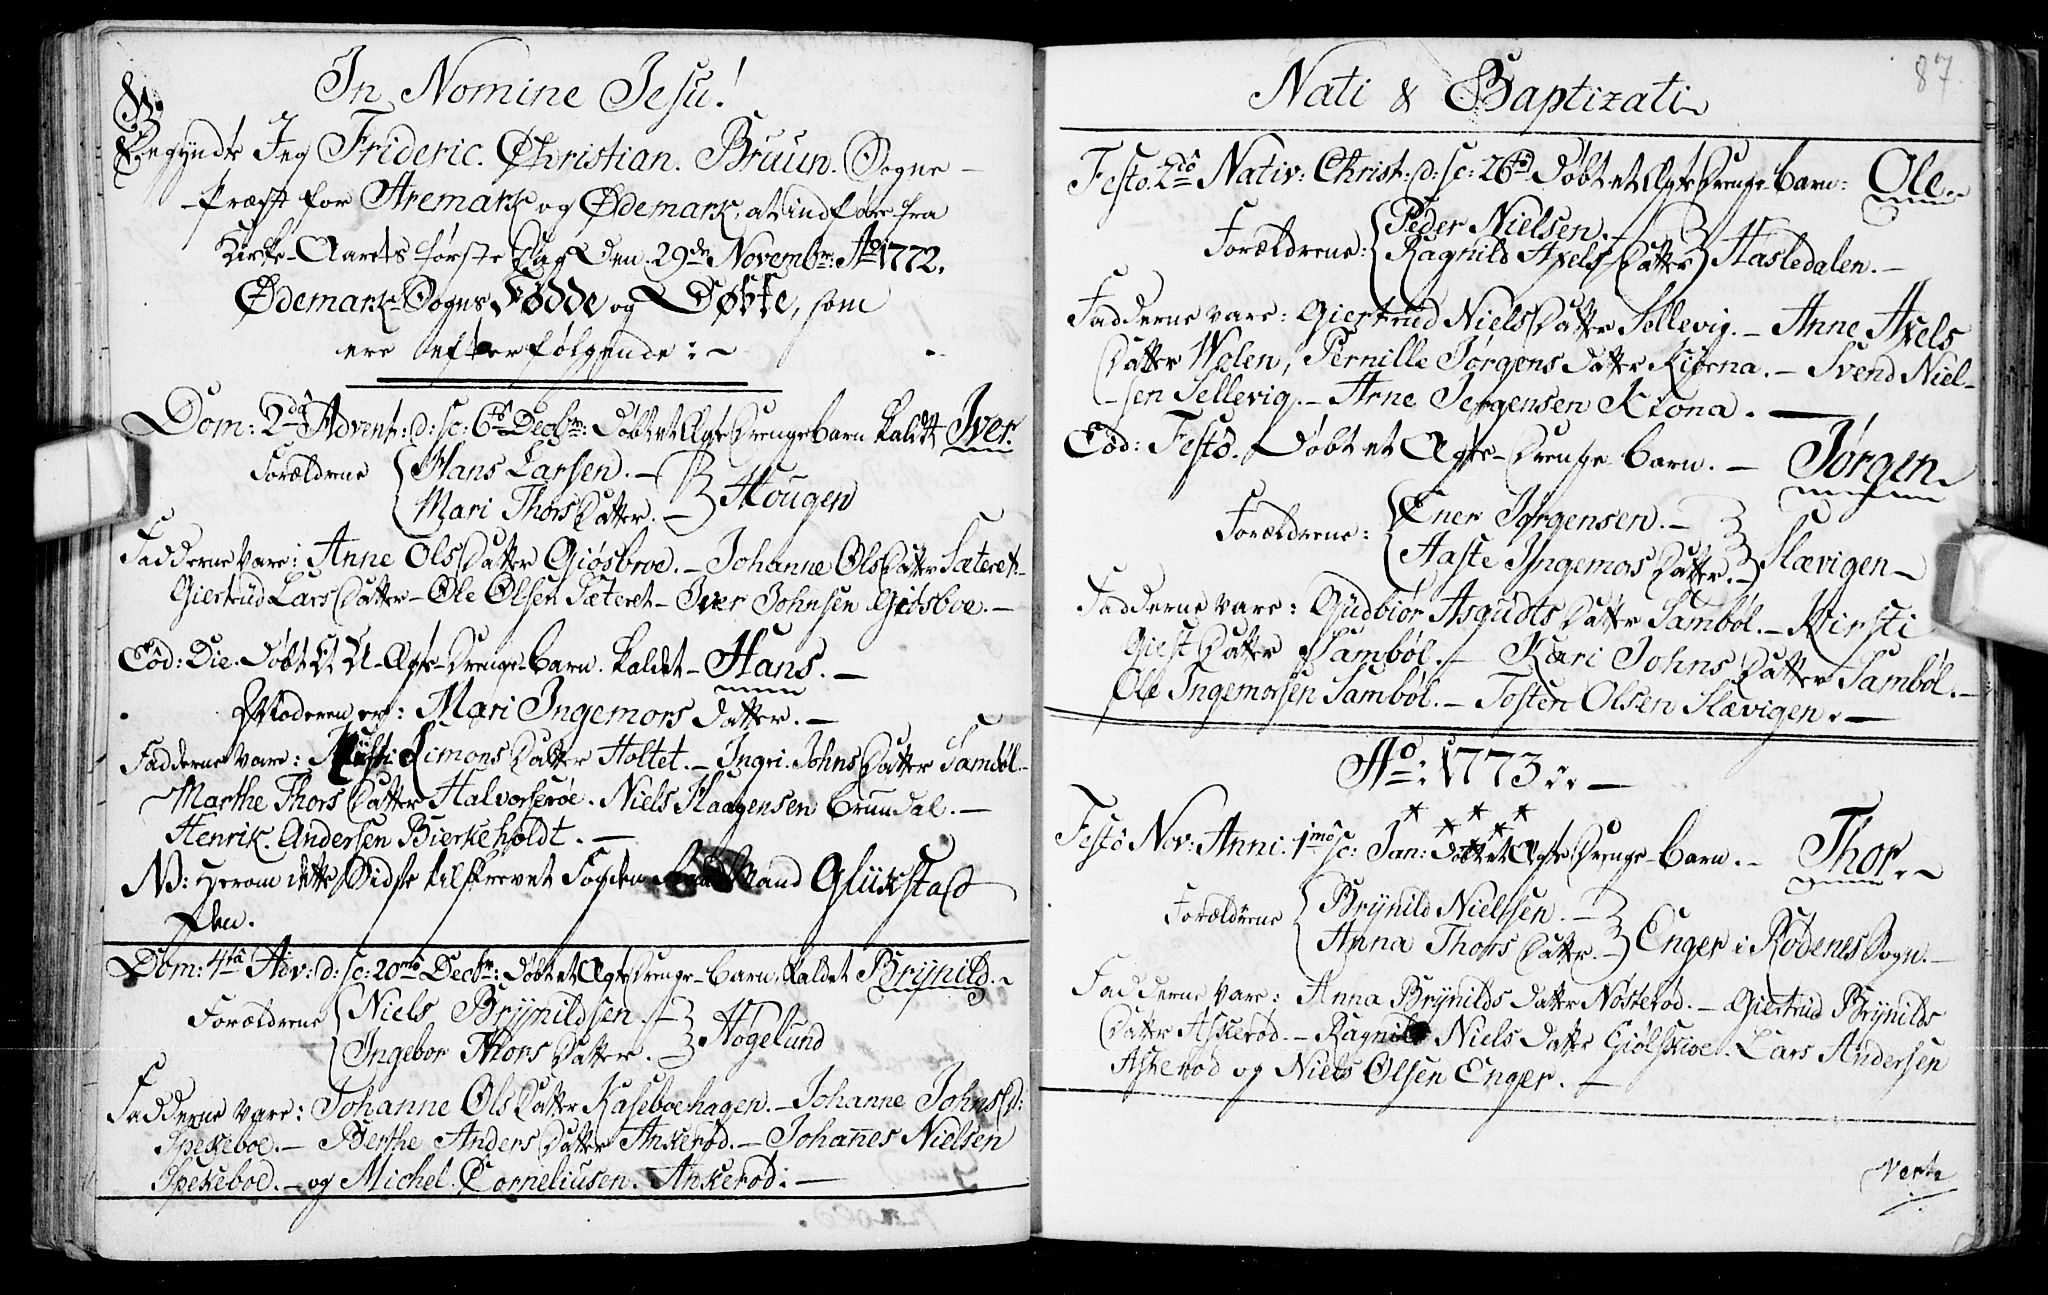 In Nomine Jesu!
Begyndte Jeg Frideric. Christian. Bruun. Sogne-
-Præst for Aremark og Ødemark, at indføre fra
Kirke-Aarets første Dag Den 29de Novembr: Ao 1772.
Ødemark-Sogns Fødde og Døbte, som
ere efterfølgende:~
Dom: 2dâ Advent: d: sc: 6tô Decbr: Døbt et Ægte DrengeBarn kaldt Iver.
Forældrene Hans Larsen.-
Mari ThorsDatter.- Hougen
Fadderne vare: Anne OlsDatter Giøsboe.- Johanne OlsDatter Sæteret-
Giertrud LarsDatter- Ole Olsen Sæteret- Iver Johnsen Giøsboe.-
Eôd: Die. Døbt Et U-Ægte-Drenge-Barn. kaldet- Hans.-
Moderen er: Mari Ingemors Datter.-
Fadderne vare: Simons Datter Holtet.- Ingri. JohnsDatter Sambøl.-
Marthe ThorsDatter Halvorserøe. Niels Haagensen Brundal.-
Henrik. Andersen Bierkeholdt.-
NB: Herom dette Sidste tilskrevet Fogden Glückstad
Den.
Dom: 4tâ Adv: d: sc: 20mô Decbr: Døbt et Ægte Drenge-barn, kaldet Brÿnild.~
Forældrene Niels Brÿnildsen.-
Ingebor Thors Datter.- Høgelund
Fadderne vare: Johanne OlsDatter Kaseboehagen.- Johanne Johns D:
Spekeboe.- Berthe AndersDatter Ankerød.- Johannes Nielsen
Spekeboe.- og Michel. Corneliusen. Ankerød:-
87
Nati & Baptizati
Festo. 2dô Nativ: Christ: d: sc: 26tô Døbt et Ægte Drenge-Barn: Ole.-
Forældrene: Peder Nielsen.-
Ragnild AxelsDatter Hasledalen.-
Fadderne vare: Giertrud NielsDatter Sellevig.- Anne Axels
Datter Wolen, Pernille Jørgens Datter Kiøna.- Svend Niel-
-sen Sellevig.- Arne Jergensen Kiona.-
Eôd: Festô. Døbt et Ægte-Drenge Barn.- Jørgen.
Forældrene: Ener Jørgensen.-
Aaste Ingemors Datter.- Slævigen-
Fadderne vare: Gudbiør AsgudtsDatter Sambøl.- Kirsti
Giest Datter Sambøl.- Kari Johns Datter Sambøl.-
Ole Ingemorsen Sambøl.- Tosten Olsen Slævigen.-
Ao: 1773.-
Festô Nov: Anni. 1mô sc: Jan: Døbt et Ægte Drenge-Barn.- Thor.-
Forældrene Brÿnild Nielssen.-
Anna Thors Datter.- Enger i Rødenes Sogn.-
Fadderne vare: Anna Brÿnilds Datter Nøsterød.- Giertrud Brÿnilds
Datter Askerød.- Ragnild Niels Datter Giølsboe. Lars Andersen
Askerød og Niels Olsen Enger.-
Verte